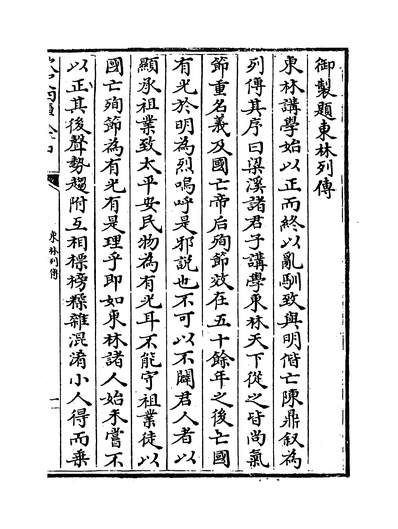 御製題東林列傳
東林講學始以正而終以亂馴致與明偕亡陳鼎叙為
列傳其序曰梁溪諸君子講學東林天下從之皆尚氣
節重名義及國亡帝后殉節效在五十餘年之後亡國
有光於明為烈嗚呼是邪説也不可以不闢君人者以
顯承祖業致太平安民物為有光耳不能守祖業徒以
國亡殉節為有光有是理乎即如東林諸人始未嘗不
以正其後聲勢趨附互相標榜糅雜混淆小人得而乗
東林列傳
一